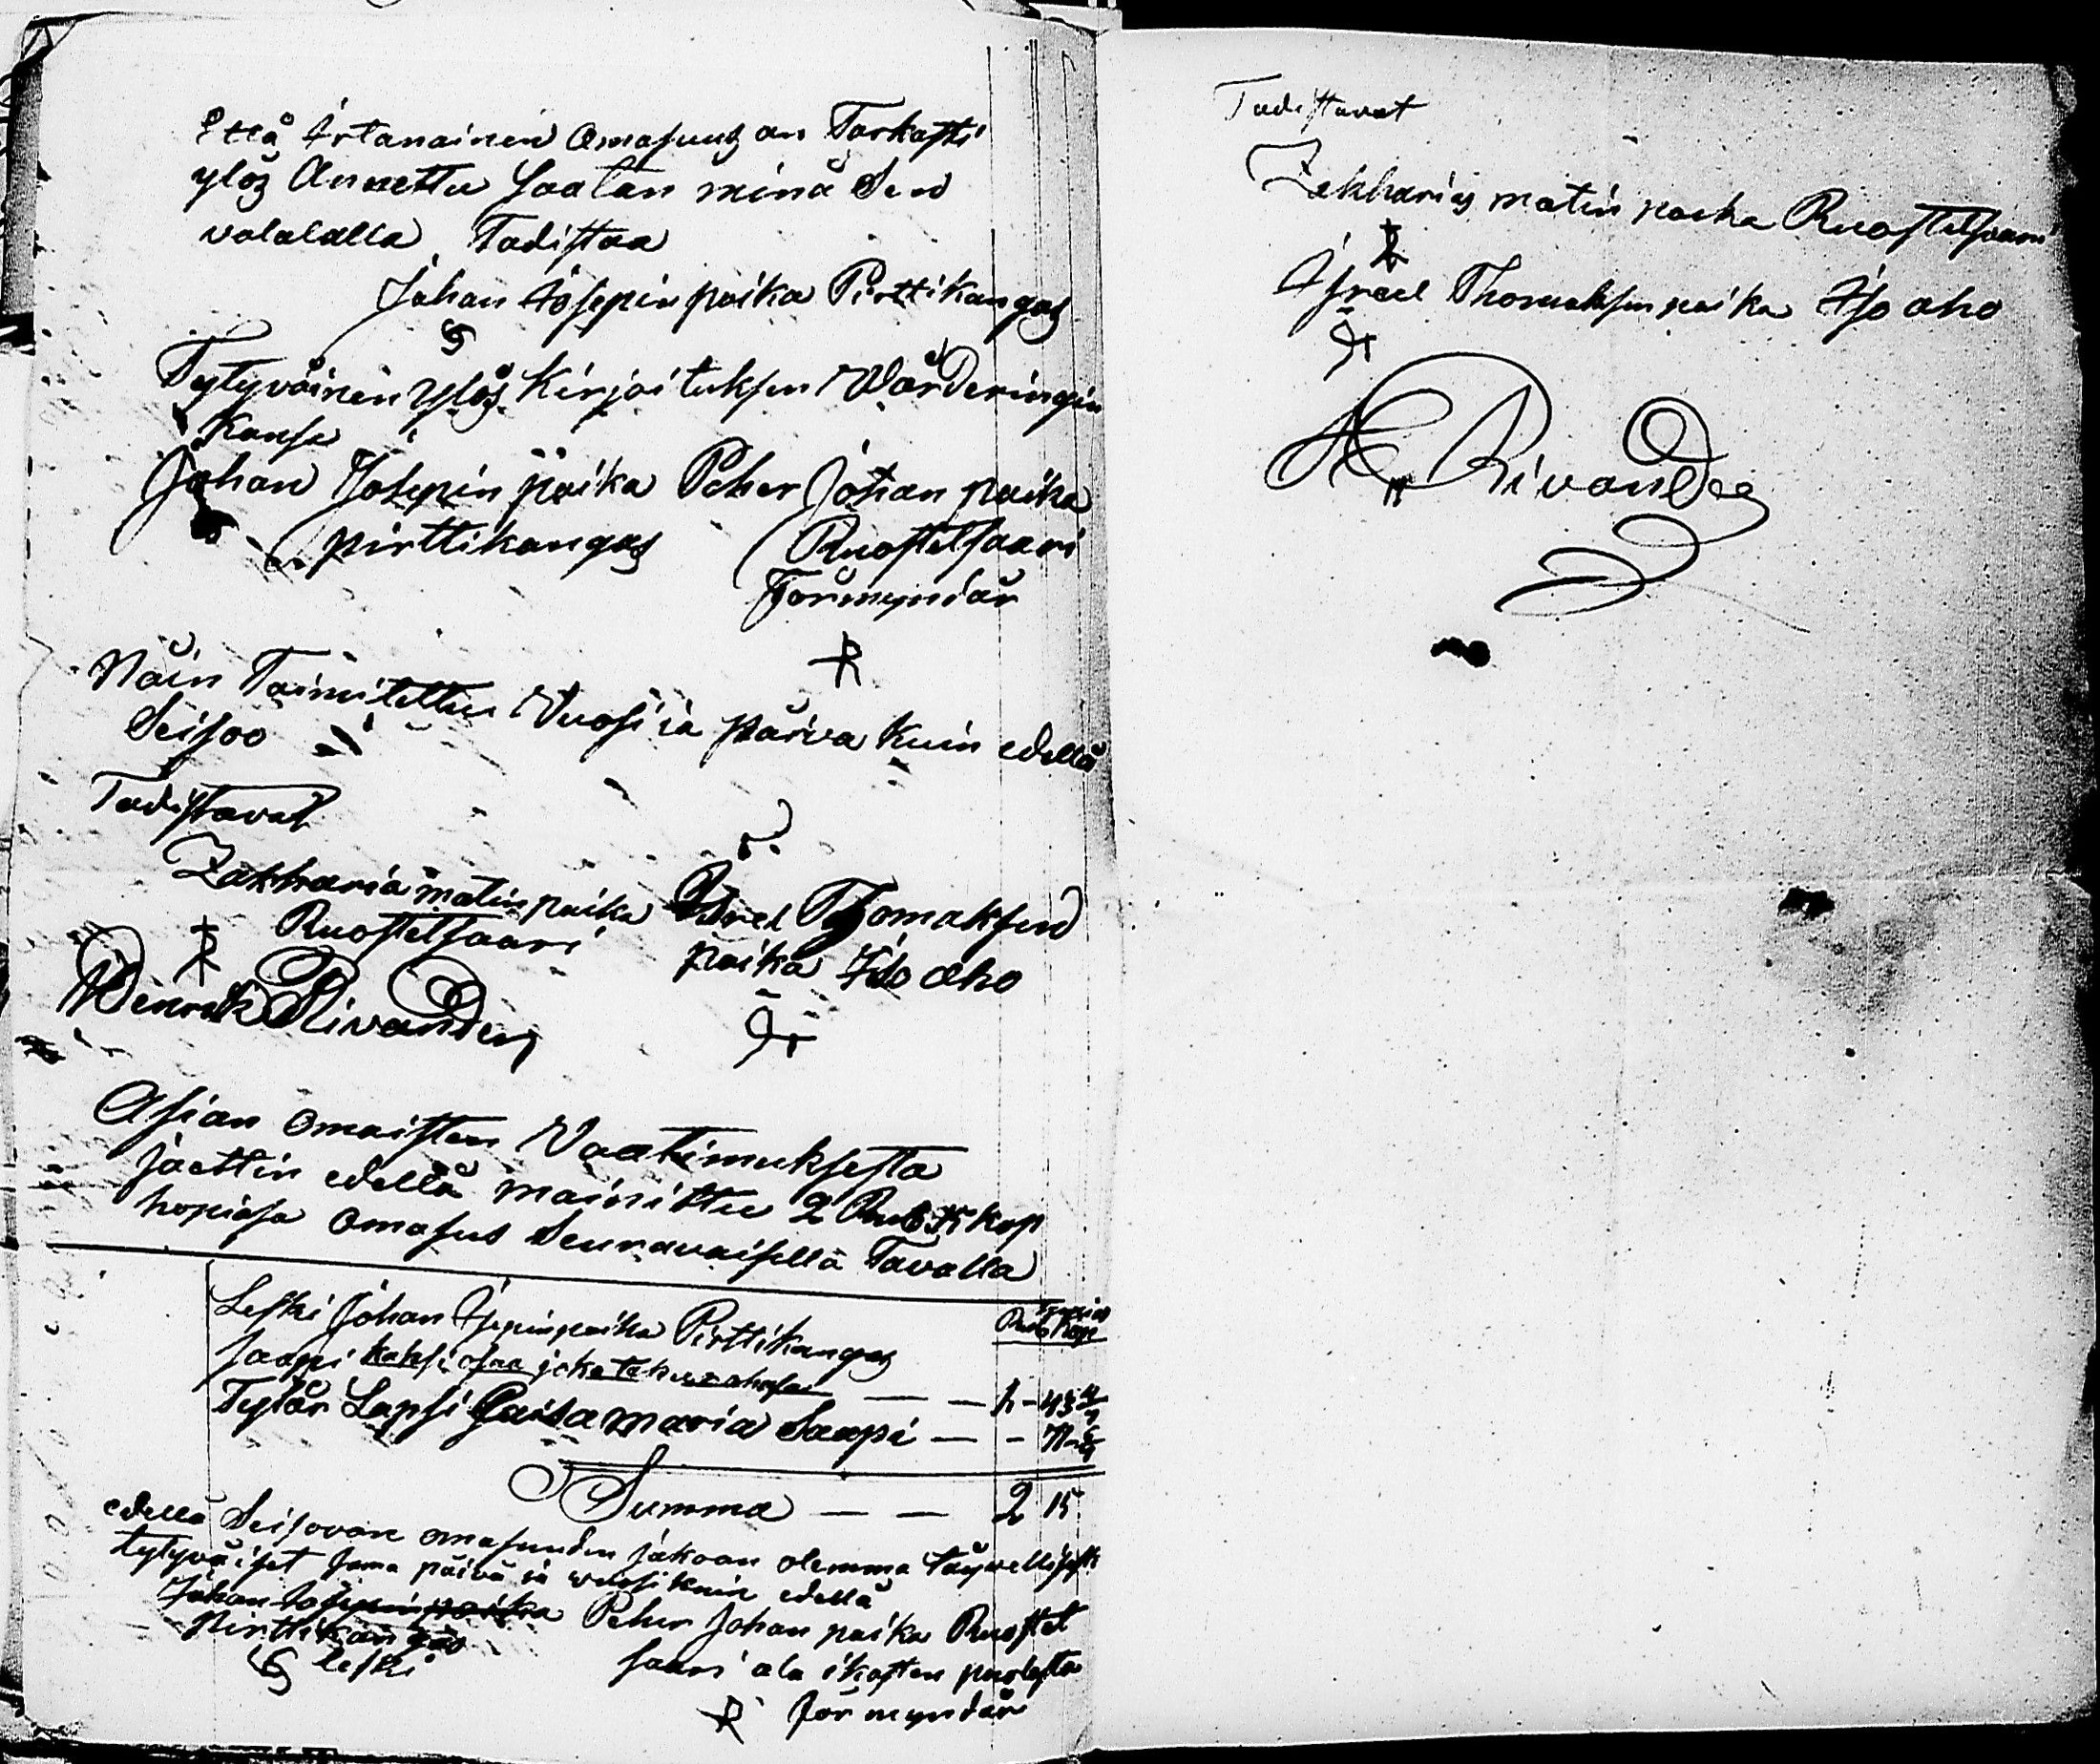 Että Irtanainen Omasuus on Tarkasti
ylös Annettu Saatan minä Sen
valalalla Todistaa
Johan Josepin poika Pirttikangas
Tytyväinen Ylös Kirjoituksen Värderingin
Kansa
Johan Josepin poika Peher Johan poika
pirttikangas Ruostetsaari
Förmyndär
Näin Toimitettu Vuosi ja päivä kuin edellä
Seisoo
Todistavat
Zakharia matin poika Isrel Thomaksen
Ruostetsaari poika Iso aho
Henrik Rivander
Asian omaisten Vaatimuksesta
Jaettin edellä mainittu 2 Rub 15 kop
hopiasa Omasus Seuravaisella Tavalla
Leski Johan Josepinpoika Pirttikangas Rub Kop
Saapi kaksi osaa joka tekee rahasa — — 1 - 43
Tytär Lapsi Caisa maria Saapi — - 71
Summa — — 2 15
edellä Seisovan omasuuden jakoon olemma täyvellisesti
tytyväiset Sama päivä ja vuosi kuin edellä
Johan Josepin poika Peher Johan poika Ruostet
Pirttikangas saari ala ikästen puolesta
leski
för myndär
Todistavat
Zakharias matin poika Ruostetsaari
Israel Thomaksen poika Iso aho
H Rivander